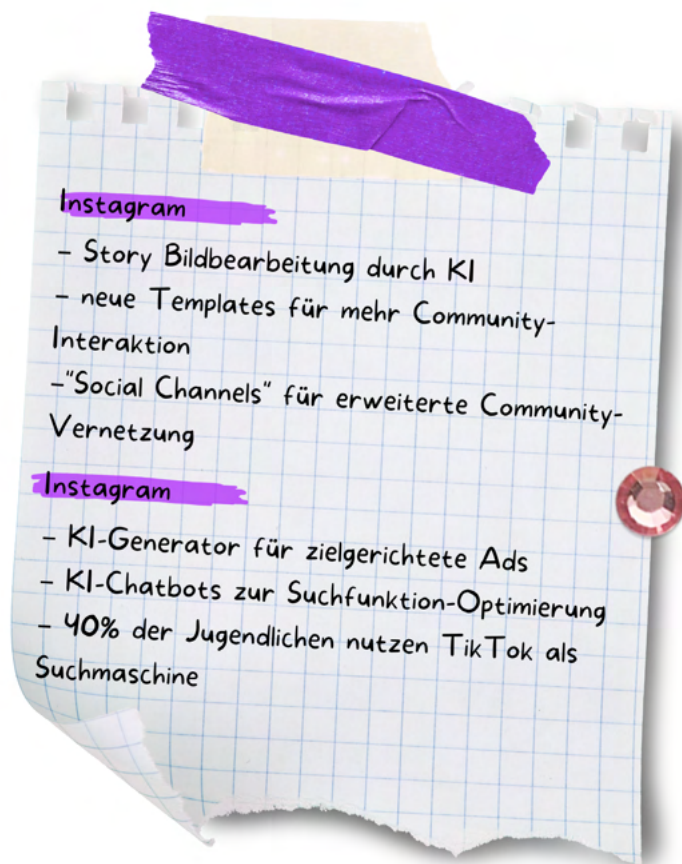 Instagram
- Story Bildbearbeitung durch KI
- neue Templates für mehr Community-
Interaktion
-"Social Channels" für erweiterte Community-
Vernetzung
Instagram
- KI-Generator für zielgerichtete Ads
- KI-Chatbots zur Suchfunktion-Optimierung
- 40% der Jugendlichen nutzen TikTok als
Suchmaschine